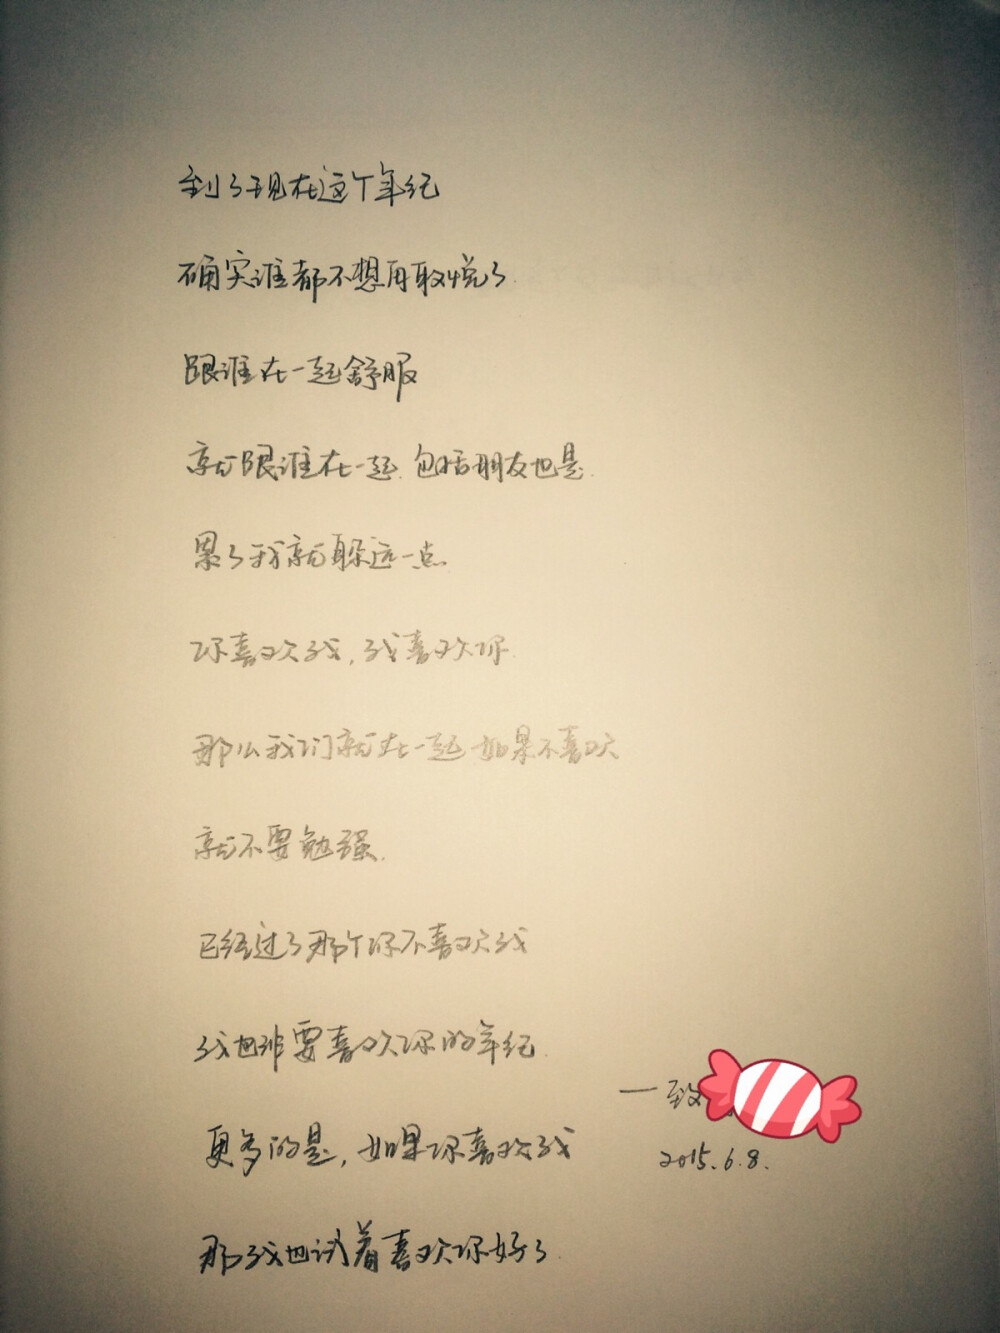 到了现在这个年纪
确实谁都不想再取悦了.
跟谁在一起舒服
就跟谁在一起.包括朋友也是.
累了我就躲远一点.
你喜欢我,我喜欢你.
那么我们就在一起.如果不喜欢
就不要勉强.
已经过了那个你不喜欢我
我也非要喜欢你的年纪.
更多的是,如果你喜欢我
那我也试着喜欢你好了.
—致
2015.6.8.